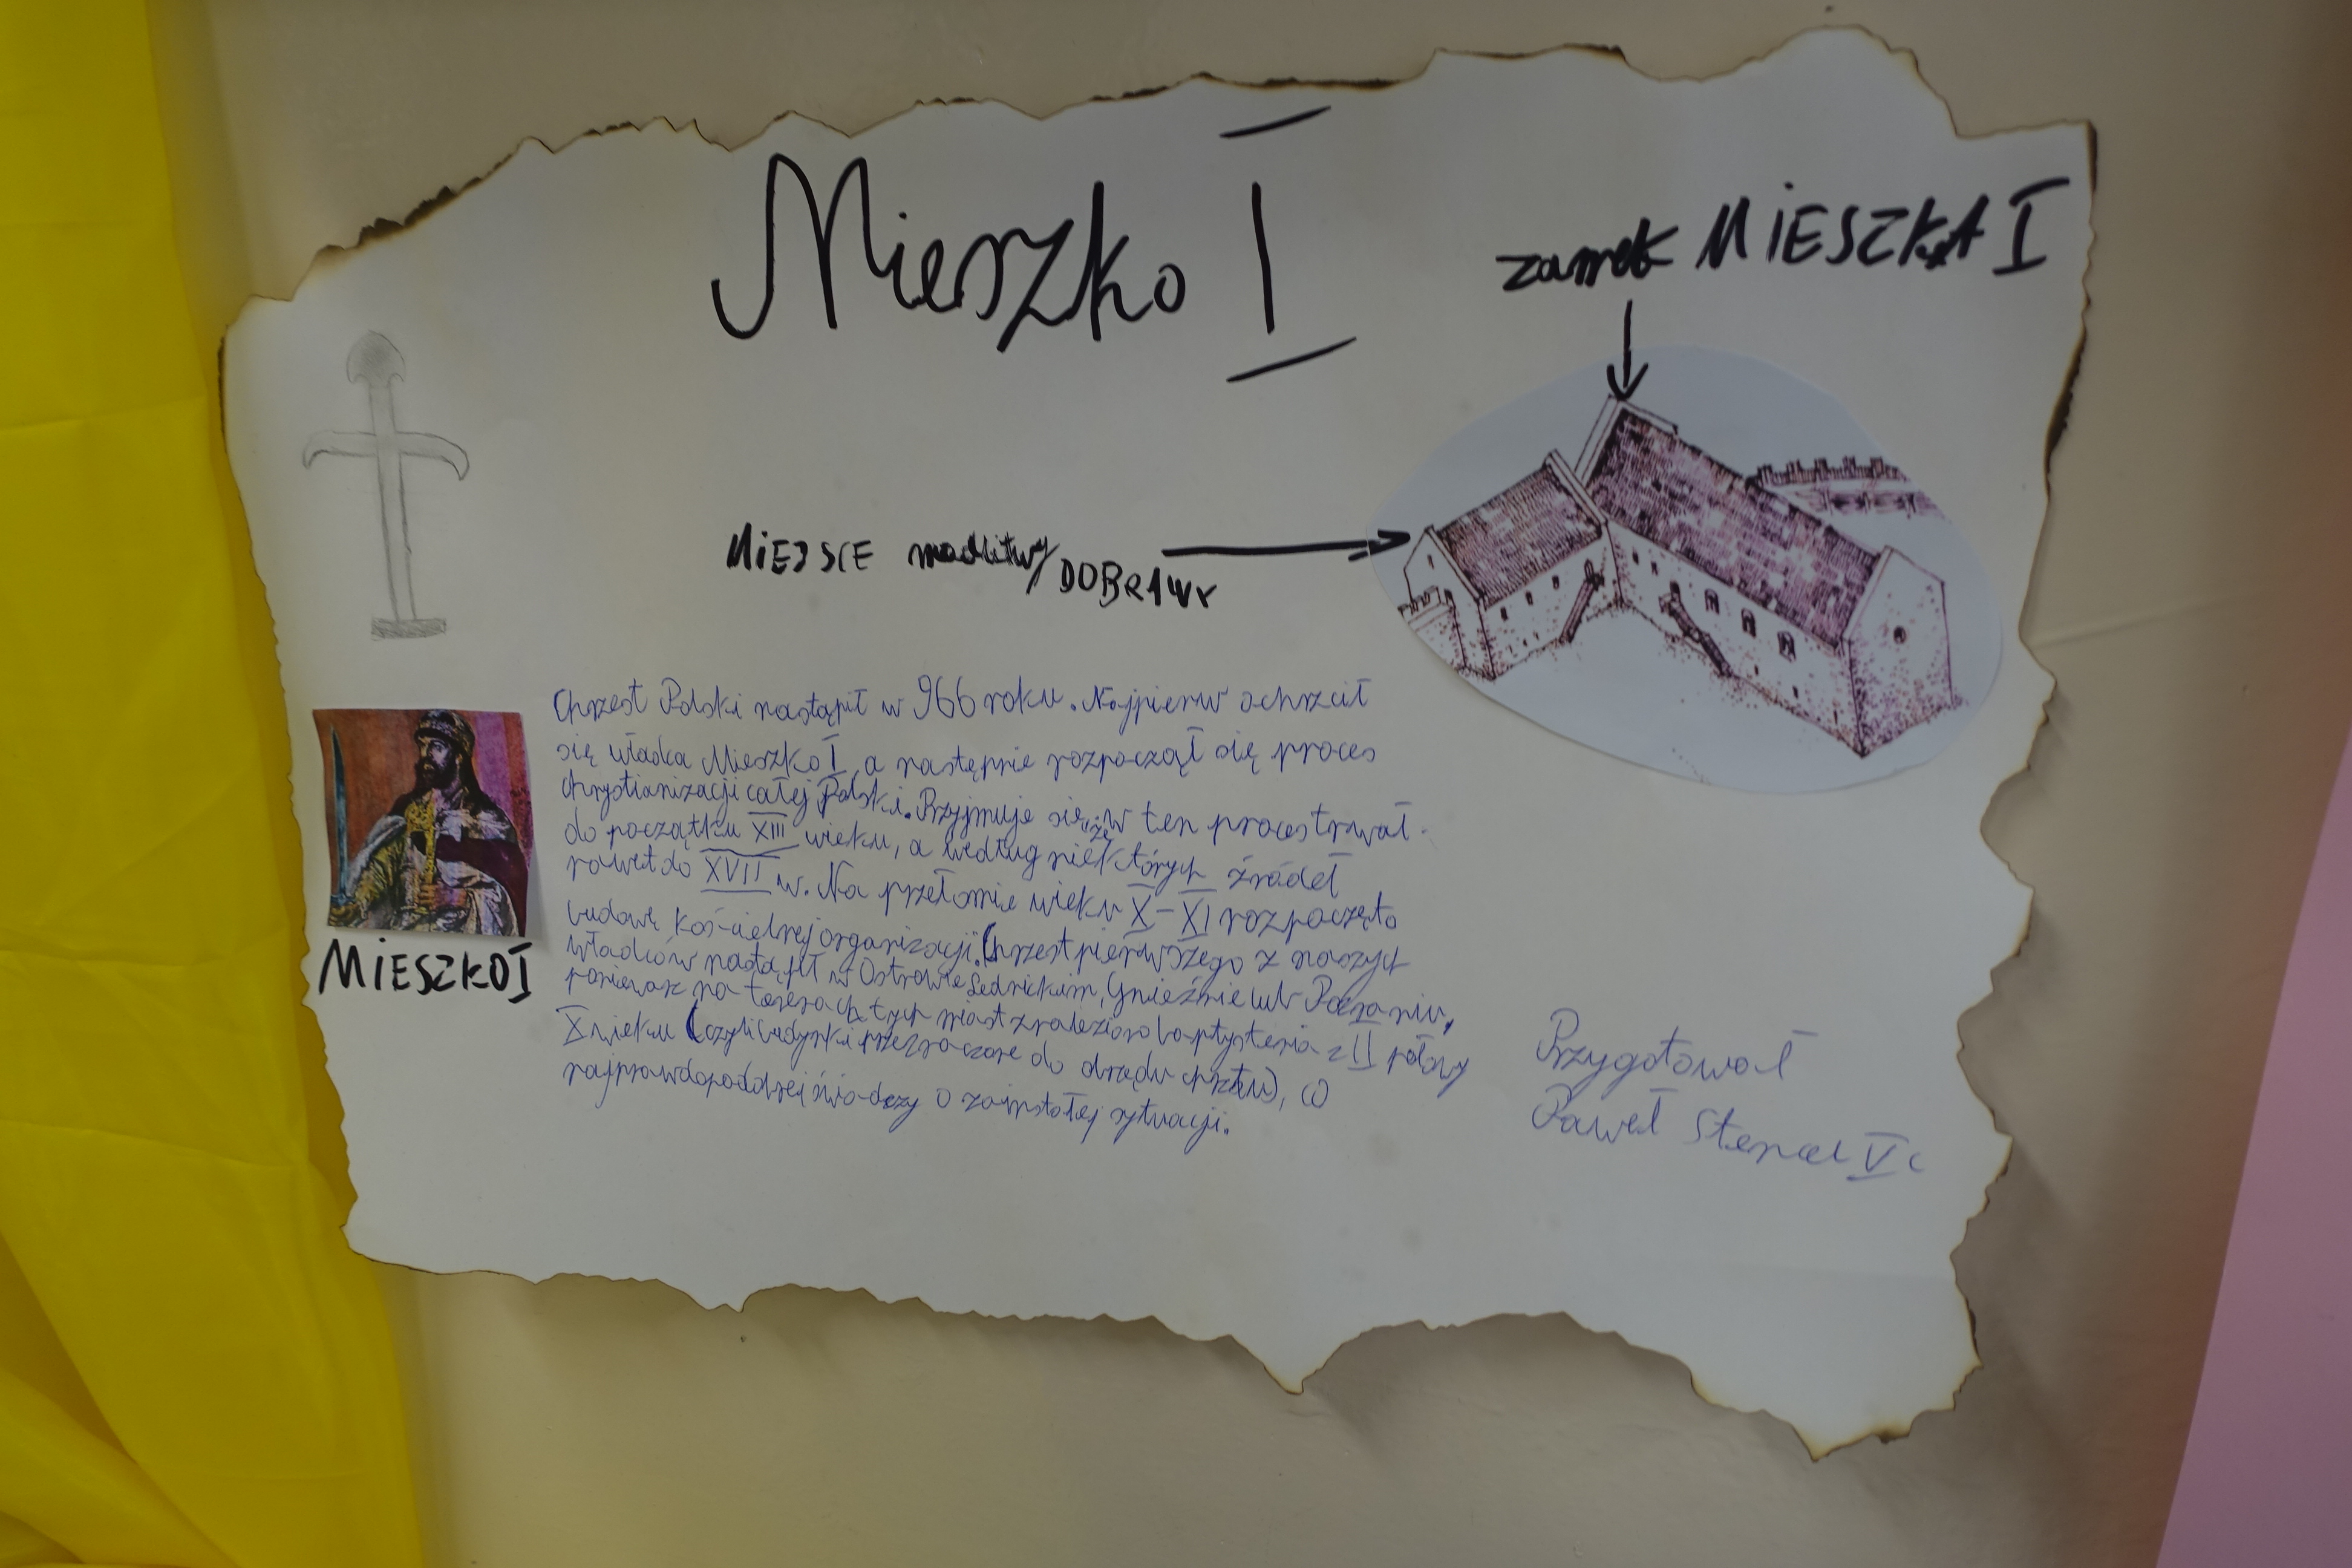 Mieszko I
zamek MIESZKA I
MIEJSCE modlitwy DOBRAWY
Chrzest Polski nastąpił w 966 roku. Najpierw ochrzcił
się władca Mieszko I, a następnie rozpoczął się proces
chrystianizacji całej Polski. Przyjmuje się, że ten proces trwał
do początku XIII wieku, a według niektórych źródeł
nawet do XVII w. Na przełomie wieku X-XI rozpoczęto
budowę kościelnej organizacji. Chrzest pierwszego z naszych
władców nastąpił w Ostrowie Lednickim, Gnieźnie lub Poznaniu,
ponieważ na terenach tych miast znaleziono baptysteria z II połowy
X wieku (czyli budynki przeznaczone do obrzędu chrztu), co
najprawdopodobniej świadczy o zaistniałej sytuacji.
MIESZKO I
Przygotował
Paweł V c